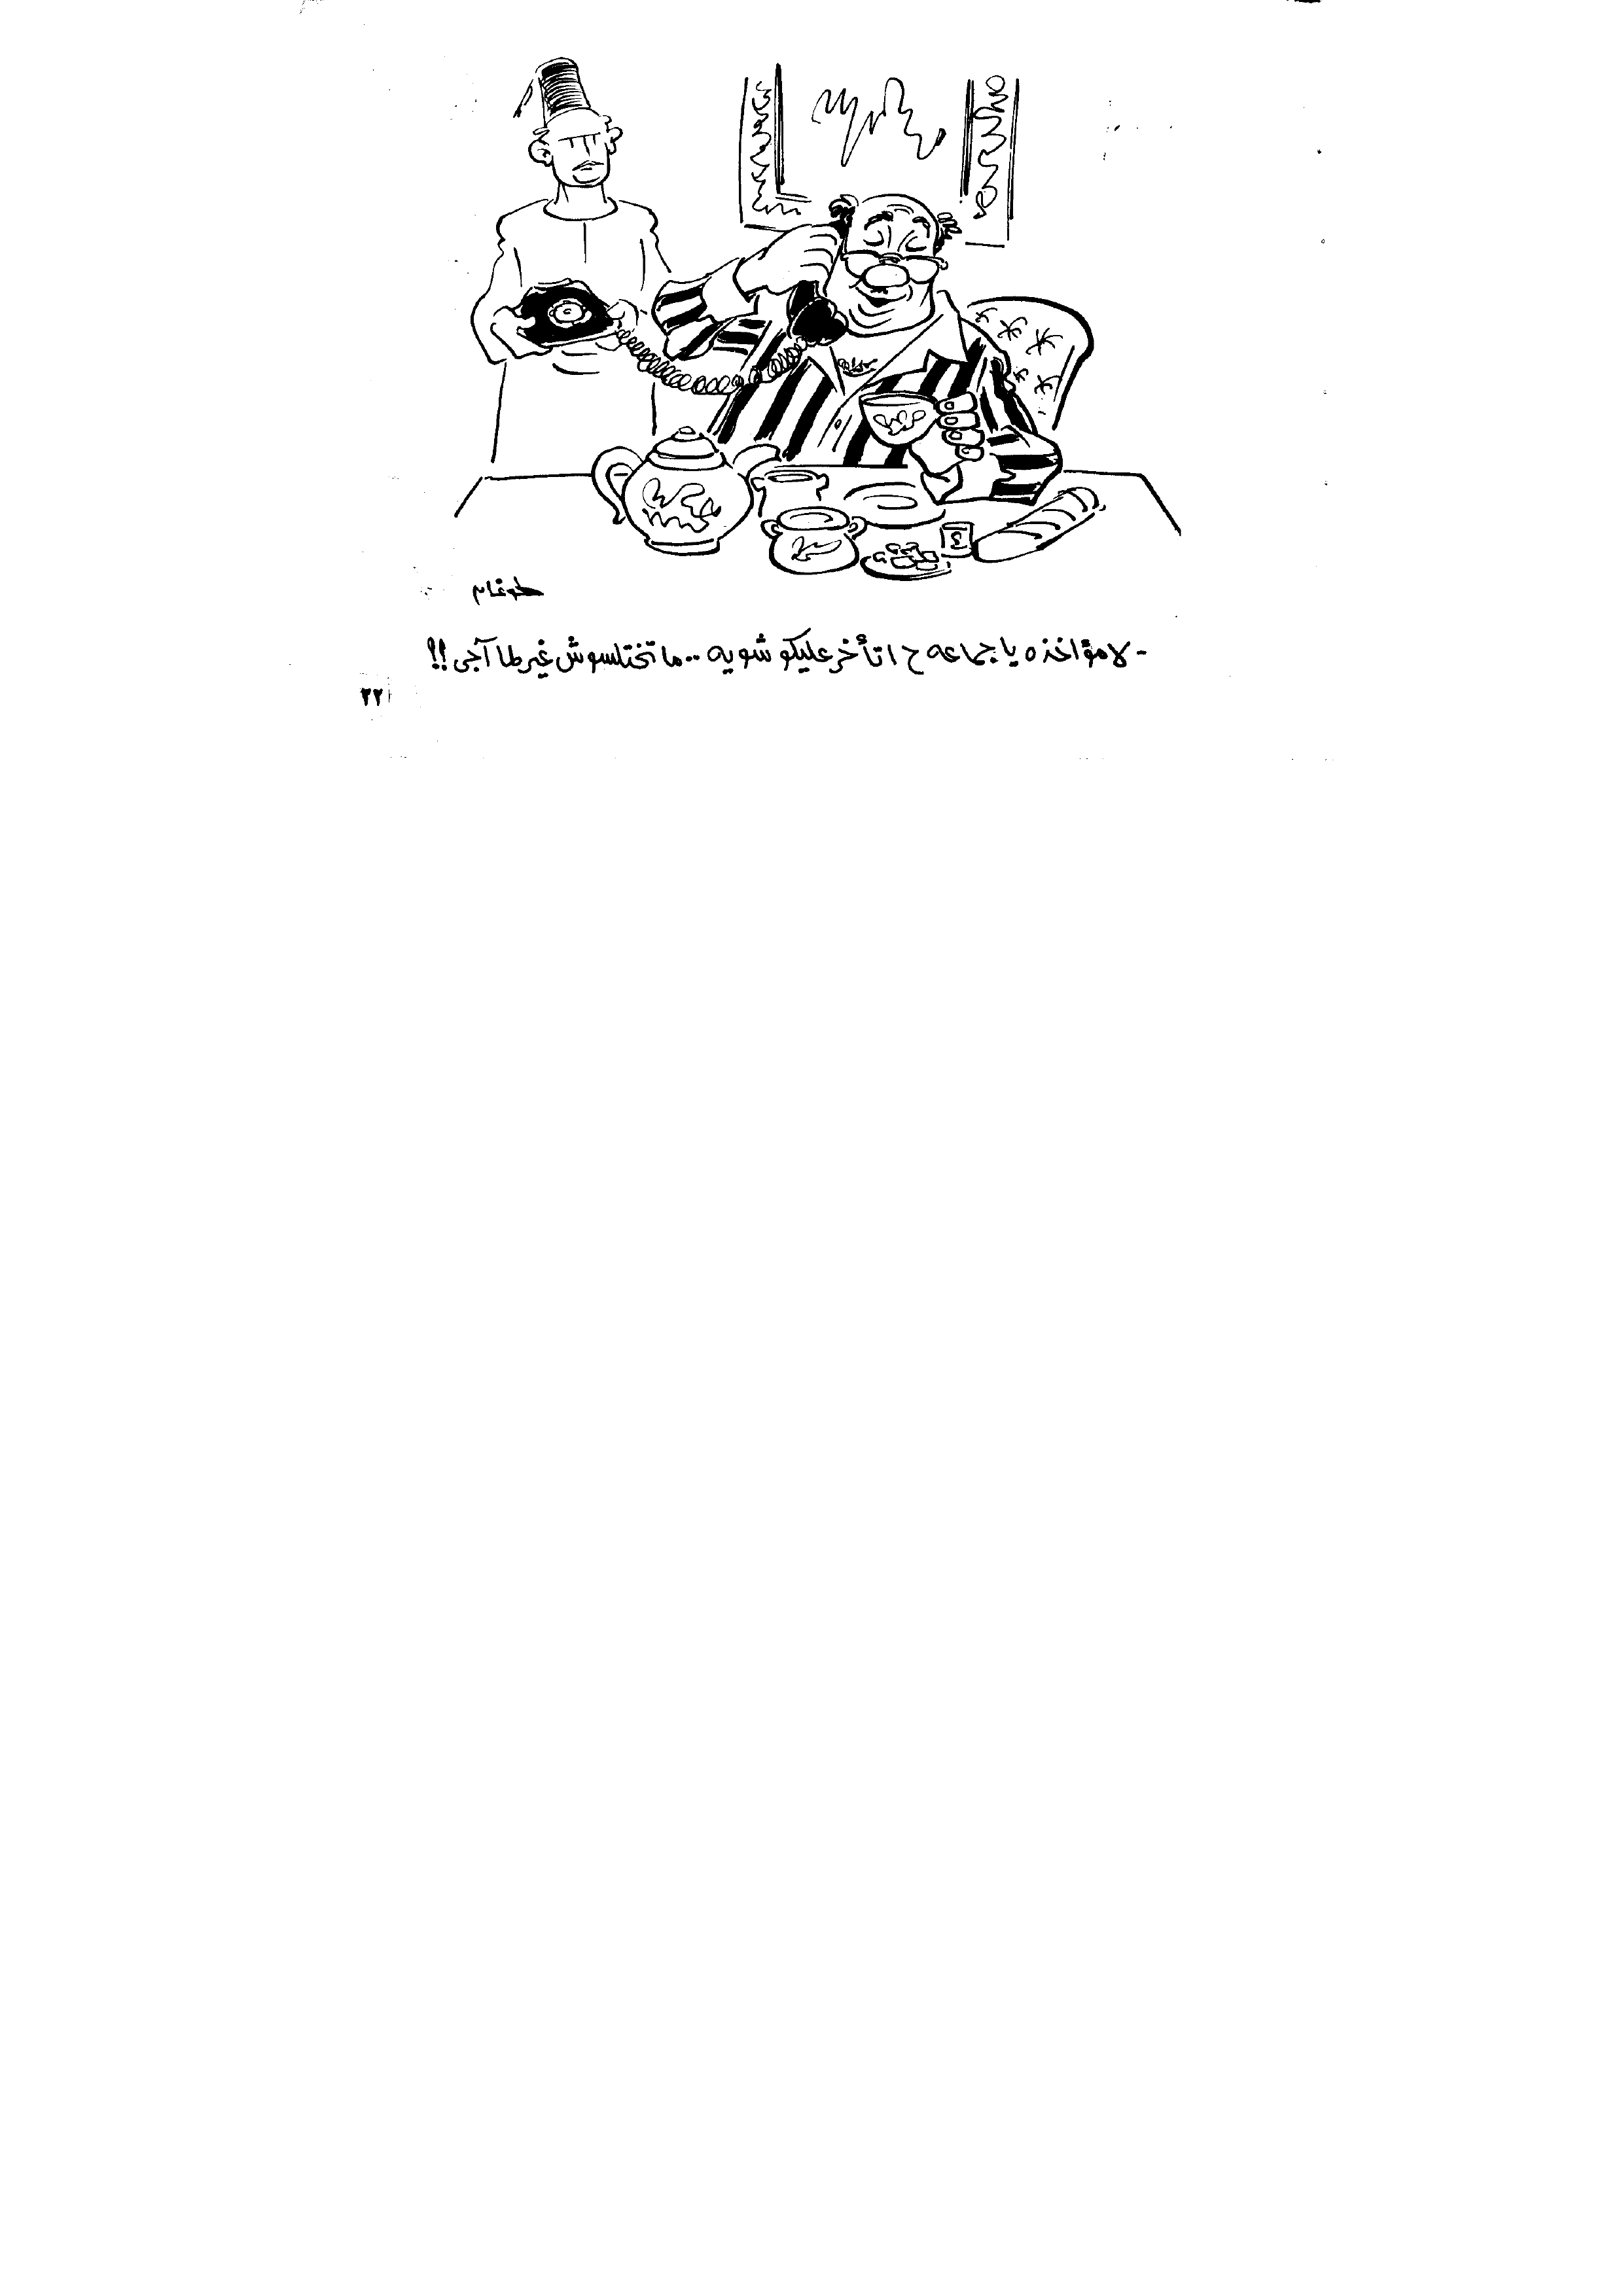 طوغان
- لا مؤاخذه يا جماعه ح اتأخر عليكو شويه .. ما تختلسوش غير لما آجى !!
٢٢